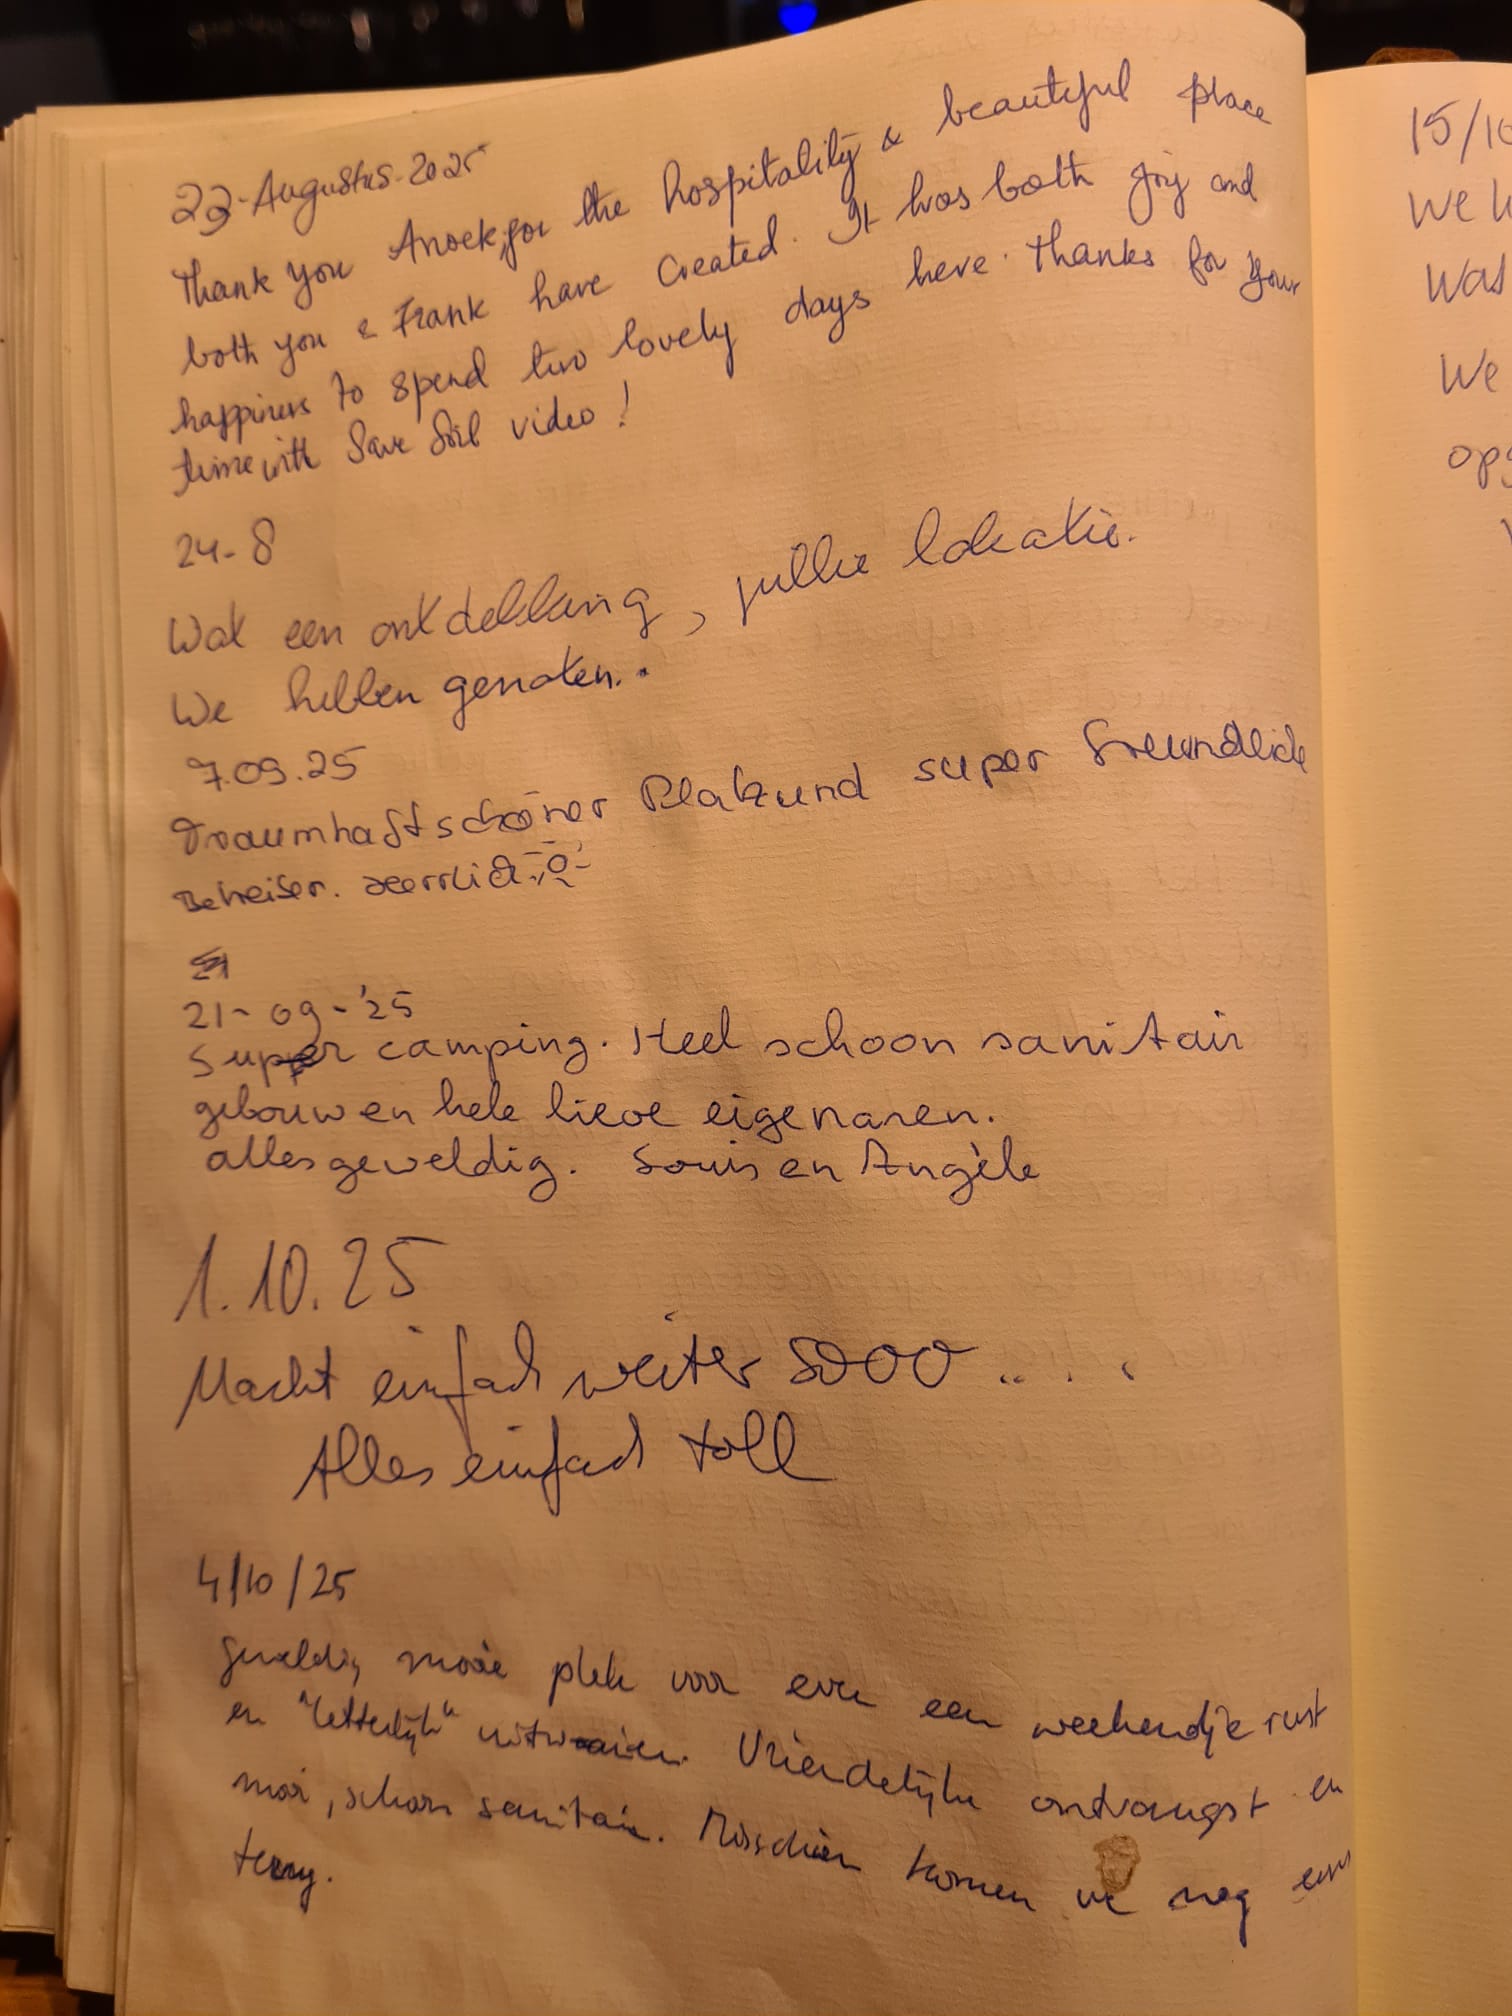 23-Augustus-2025
Thank you Anoek, for the hospitality & beautiful place
both you & Frank have created. It was both joy and
happiness to spend two lovely days here. Thanks for your
time with Save Soil video!
24-8
Wat een ontdekking, jullie lokatie.
We hebben genoten.
7.09.25
Traumhaft schöner Platz und super freundliche
Betreiber. Herrlich
21-09-'25
Super camping. Heel schoon sanitair
gebouw en hele lieve eigenaren.
alles geweldig. Louis en Angèle
1.10.25
Macht einfach weiter sooo.....
Alles einfach toll
4/10/25
Geweldig, mooie plek voor even een weekendje rust
en "letterlijk" uitwaaien. Vriendelijke ontvangst en
mooi, schoon sanitair. Misschien komen we nog eens
terug.
15/10
We
Was
We